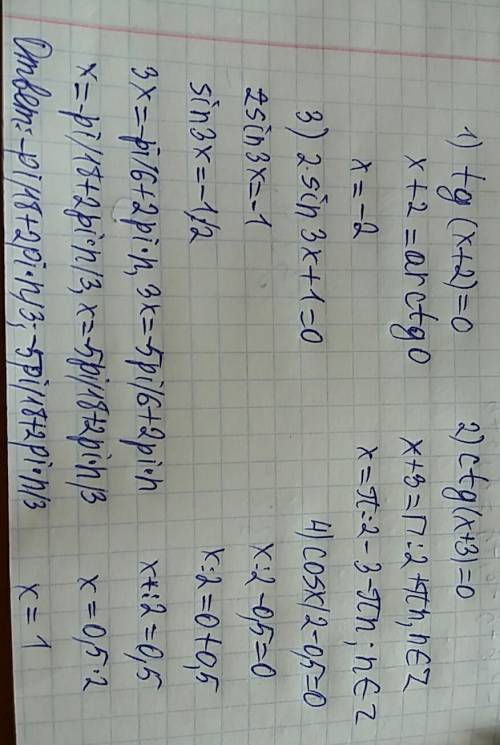 1) tg (x+2)=0
x+2=arctg0
x=-2
3) 2·sin 3x+1=0
2sin3x=-1
sin3x=-1/2
3x=-pi/6+2pi·n, 3x=-5pi/6+2pi·n
x=-pi/18+2pi·n/3, x=-5pi/18+2pi·n/3
Ответ:-pi/18+2pi·n/3;-5pi/18+2pi·n/3
2) ctg(x+3)=0
x+3=π:2+πn, n∈Z
x=π:2-3-πn; n∈Z
4) cosx/2-0,5=0
x:2-0,5=0
x:2=0+0,5
x:2=0,5
x=0,5·2
x=1